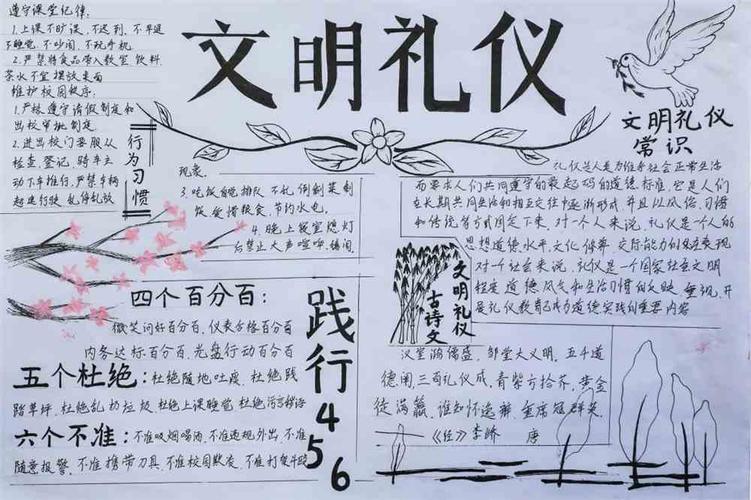 文明礼仪
遵守课堂纪律.
1.上课不旷课、不迟到、不早退
不睡觉、不吵闹、不玩手机
2.严禁将食品带入教室 饮料.
茶水不宜摆放桌面
维护校园秩序.
1.严格遵守请假制度和
出校审批制度.
2.进出校门要服从
检查、登记，骑车主
动下车推行，严禁车辆
超速行驶、乱停乱放
行为习惯
现象.
3.吃饭自觉排队 不乱倒剩菜剩
饭 爱惜粮食、节约水电.
4.晚上寝室熄灯
后禁止大声喧哗、
四个百分百：
微笑问好百分百、仪表合格百分百
内务达标百分百、光盘行动百分百
五个杜绝：杜绝随地吐痰、杜绝践
踏草坪、杜绝乱扔垃圾 杜绝上课睡觉 杜绝污言秽语
六个不准：不准吸烟喝酒、不准违规外出、不准
随意报警、不准携带刀具、不准校园欺友、不准打架斗殴
践行456
文明礼仪
常识
礼仪是人类为维系社会正常生活
而要求人们共同遵守的最起码的道德标准，它是人们
在长期共同生活和相互交往中逐渐形成 并且以风俗、习惯
和传统等方式固定下来，对一个人来说，礼仪是一个人的
思想道德水平、文化修养、交际能力的外在表现
对一个社会来说，礼仪是一个国家社会文明
程度 道德风气和生活习惯的反映 重视、开
展礼仪教育已成为道德实践的重要内容
文明礼仪
古诗文
汉室鸿儒盛，邹堂大义明，五斗道
德闻，三百礼仪成，青紫方拾芥，黄金
徒满籯，谁知怀逸辩，重席冠群英
《经》李峤 唐